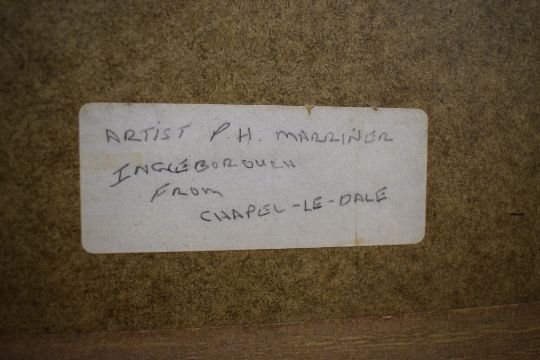 ARTIST P.H. MARRINER
INGLEBOROUGH
FROM
CHAPEL-LE-DALE